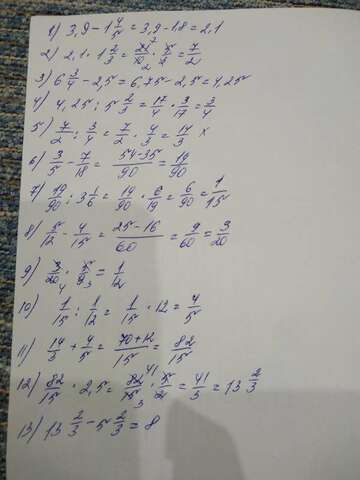 1) 3,9 - 1 4/5 = 3,9 - 1,8 = 2,1
2) 2,1 · 1 2/3 = 21/10 · 5/3 = 7/2
3) 6 3/4 - 2,5 = 6,75 - 2,5 = 4,25
4) 4,25 : 5 2/3 = 17/4 · 3/17 = 3/4
5) 7/2 : 3/4 = 7/2 · 4/3 = 14/3 x
6) 3/5 - 7/18 = 54-35/90 = 19/90
7) 19/90 : 3 1/6 = 19/90 · 6/19 = 6/90 = 1/15
8) 5/12 - 4/15 = 25-16/60 = 9/60 = 3/20
9) 3/20 · 5/9 = 1/12
10) 1/15 : 1/12 = 1/15 · 12 = 4/5
11) 14/3 + 4/5 = 70+12/15 = 82/15
12) 82/15 · 2,5 = 82/15 · 5/2 = 41/3 = 13 2/3
13) 13 2/3 - 5 2/3 = 8